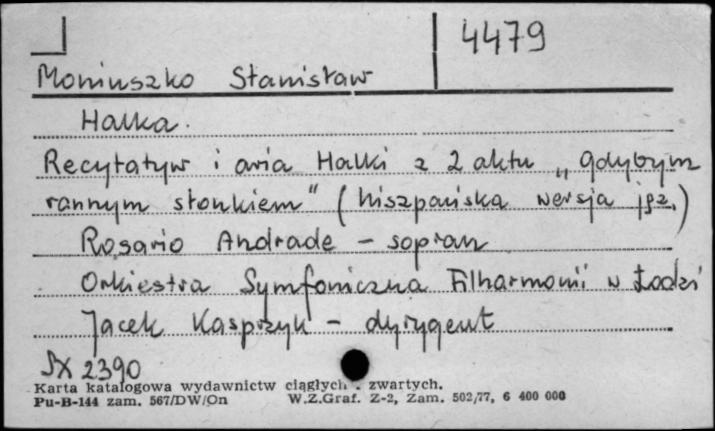 4479
Moniuszko Stanisław
Halka.
Recytatyw i aria Halki z 2 aktu „gdybym
rannym słonkiem" (hiszpańska wersja jęz.)
Rosario Andrade - sopran
Orkiestra Symfoniczna Filharmonii w Łodzi
Jacek Kasprzyk - dyrygent
SX 2390
Karta katalogowa wydawnictw ciągłych i zwartych.
Pu-B-144 zam. 567/DW/On W.Z.Graf. Z-2, Zam. 502/77, 6 400 000